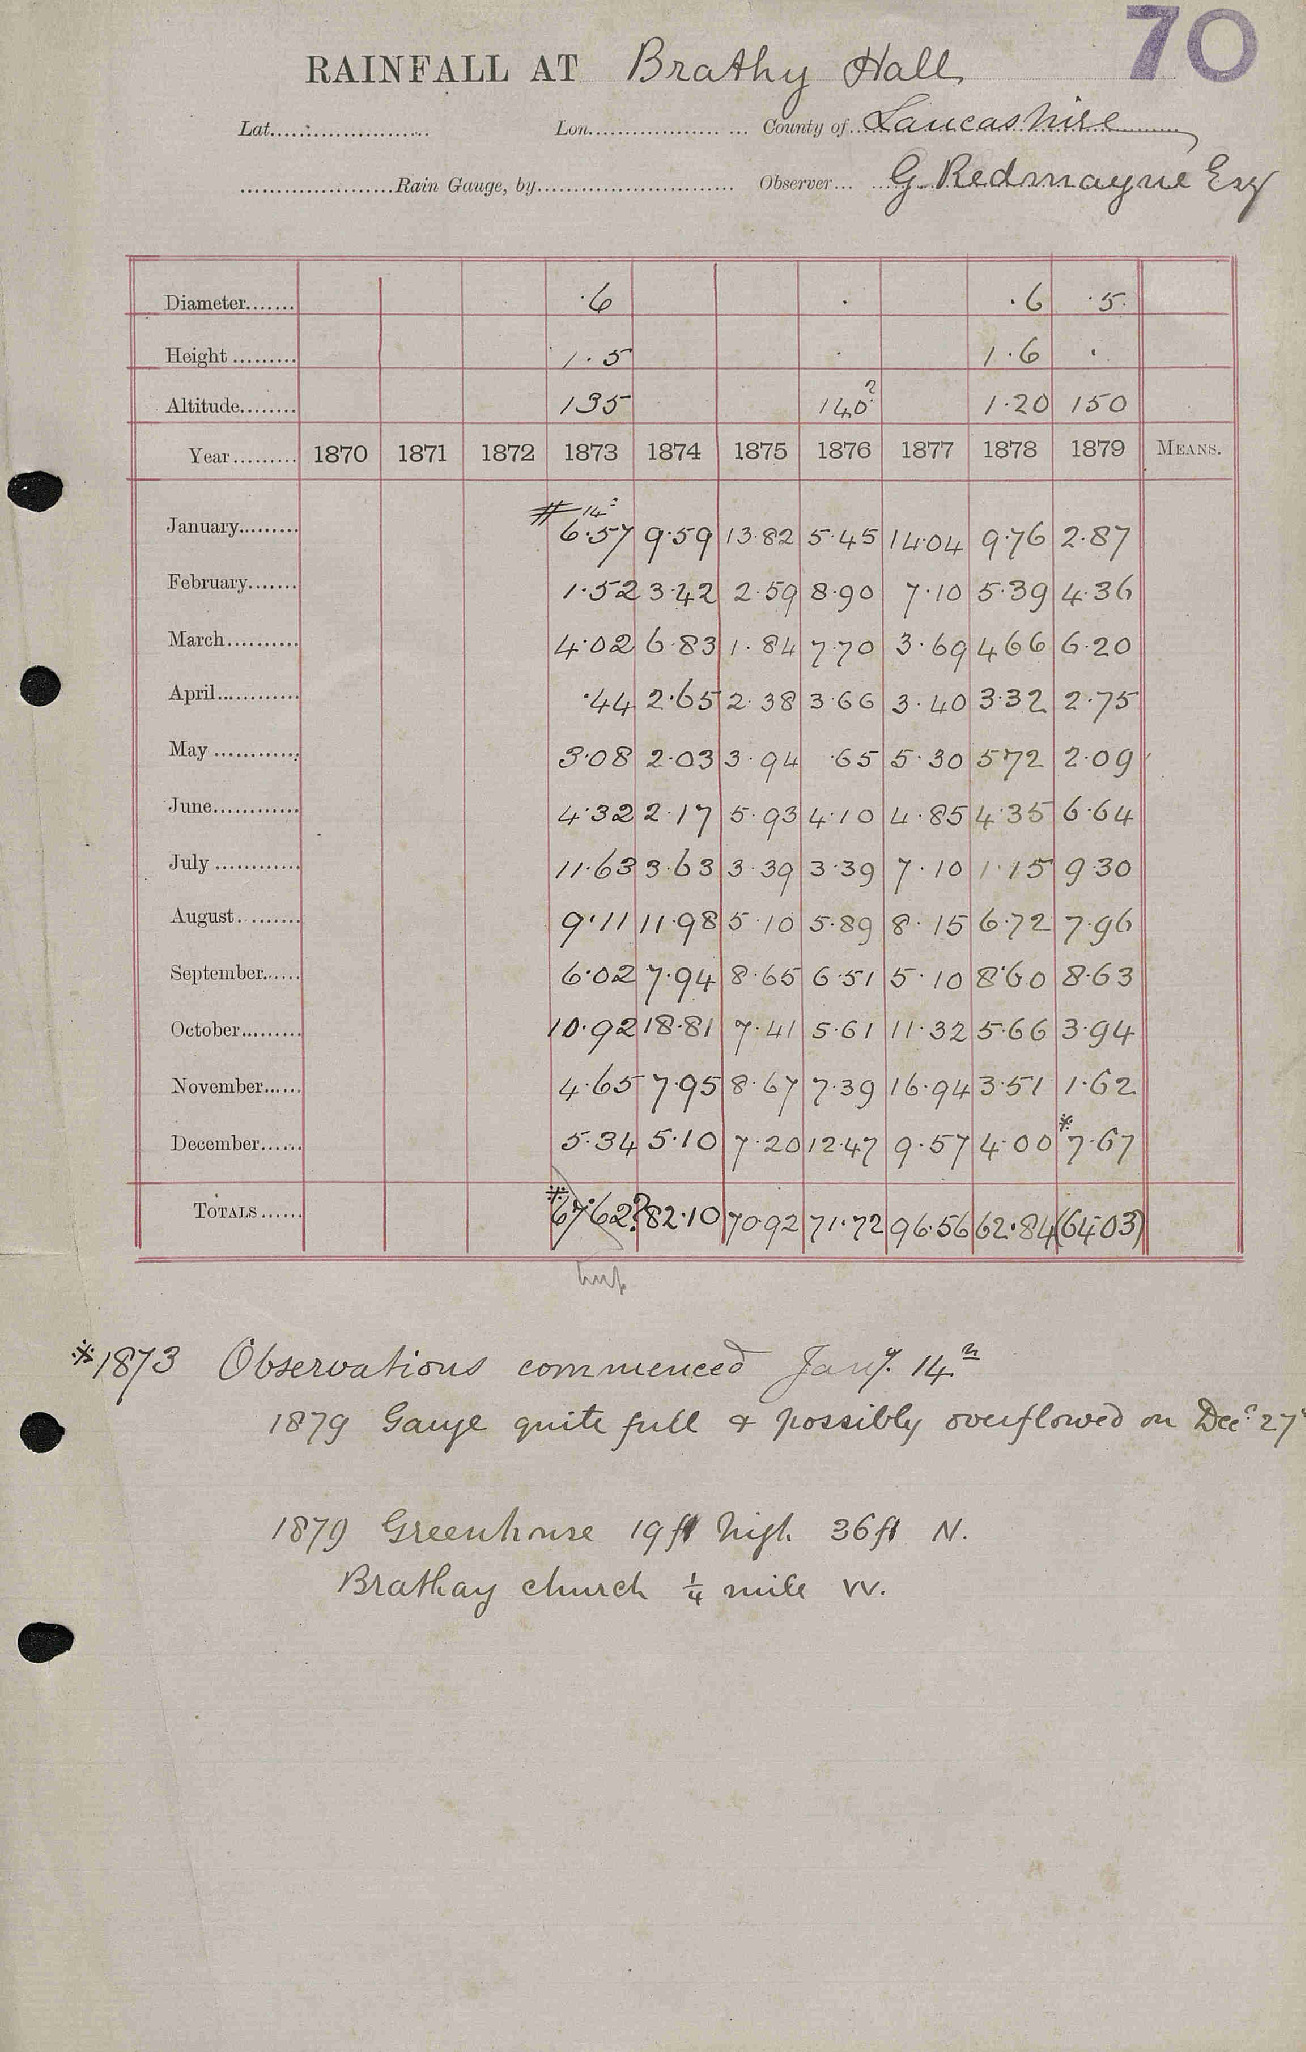 70
RAINFALL AT Brathy Hall
Lat. Lon. County of Lancashire
Rain Gauge, by Observer G Redmayne Esq
Diameter ·6 · ·6 ·5
Height 1·5 · 1·6 ·
Altitude 135 140? 1·20 150
Year 1870 1871 1872 1873 1874 1875 1876 1877 1878 1879 MEANS.
# 14
January 6·57 9·59 13·82 5·45 14·04 9·76 2·87
February 1·52 3·42 2·59 8·90 7·10 5·39 4·36
March 4·02 6·83 1·84 7·70 3·69 4·66 6·20
April ·44 2·65 2·38 3·66 3·40 3·32 2·75
May 3·08 2·03 3·94 ·65 5·30 5·72 2·09
June 4·32 2·17 5·93 4·10 4·85 4·35 6·64
July 11·63 3·63 3·39 3·39 7·10 1·15 9·30
August 9·11 11·98 5·10 5·89 8·15 6·72 7·96
September 6·02 7·94 8·65 6·51 5·10 8·60 8·63
October 10·92 18·81 7·41 5·61 11·32 5·66 3·94
November 4·65 7·95 8·67 7·39 16·94 3·51 1·62
December 5·34 5·10 7·20 12·47 9·57 4·00 *7·67
TOTALS *67·62? 82·10 70·92 71·72 96·56 62·84 (64·03)
*1873 Observations commenced Jany. 14th
1879 Gauge quite full & possibly overflowed on Decr. 27
1879 Greenhouse 19ft high 36ft N.
Brathay church 1/4 mile W.